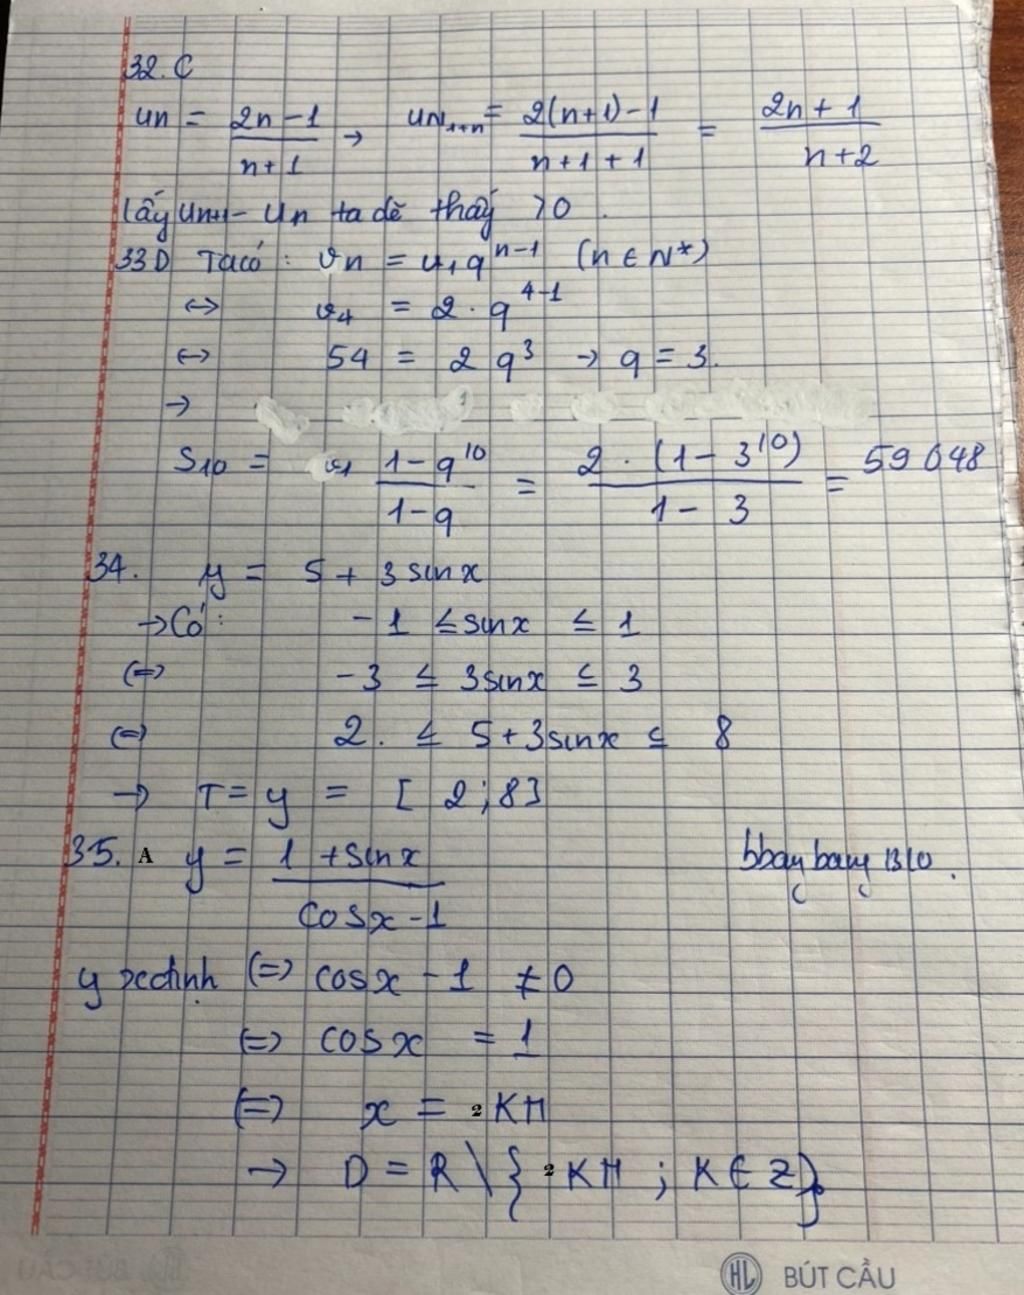 32. C
un = 2n - 1 / n + 1 → un1+n = 2(n+1) - 1 / n + 1 + 1 = 2n + 1 / n + 2
lấy un+1 - un ta dễ thấy >0.
33D Ta có: un = u1 q^n-1 (n ∈ N*)
↔ u4 = 2 . q^4-1
↔ 54 = 2 q^3 → q = 3.
→
S10 = u1 1 - q^10 / 1 - q = 2 . (1 - 3^10) / 1 - 3 = 59 048
34. y = 5 + 3 sin x
→ Có: -1 ≤ sin x ≤ 1
⇔ -3 ≤ 3 sin x ≤ 3
⇔ 2. ≤ 5 + 3 sin x ≤ 8
→ T = y = [ 2 ; 8 ]
35. A y = 1 + sin x / cos x - 1
y xđịnh ⇔ cos x - 1 ≠ 0
⇔ cos x = 1
⇔ x = 2 Kπ
→ D = R \ { 2 Kπ ; K ∈ Z }
HL BÚT CẦU